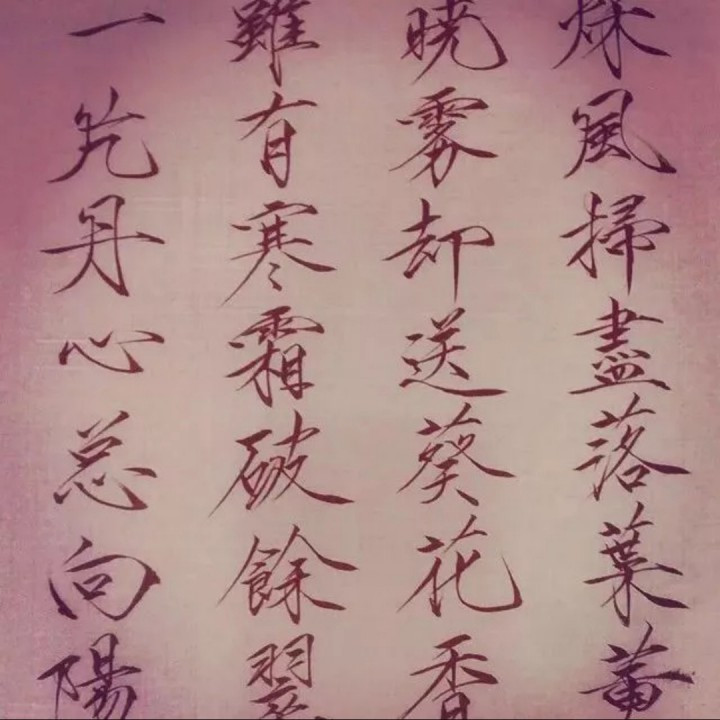 秋風掃盡落葉黃
曉雾却送葵花香
雖有寒霜破餘翠
一片丹心总向陽